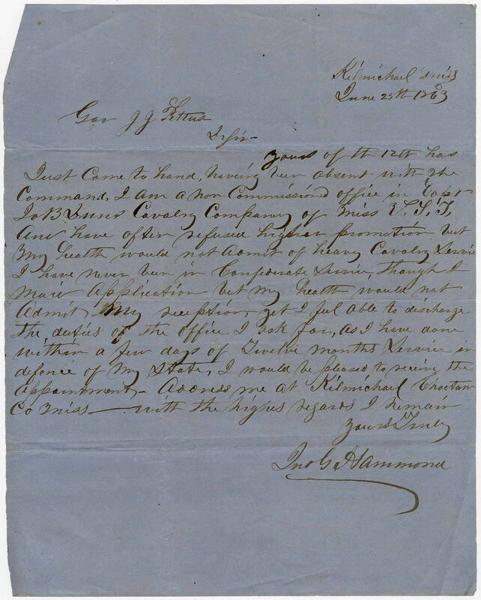 Kilmichael Miss
June 25th 1863
Gov J J Pettus
D Sir
yours of th 12th has
Just Came to hand, having been absent with the
Command, I am a non Commissiond officer in Capt
Cavalry Company of Miss V. S. T,
And have often refused higher promotion but
My health would not admit of heavy Cavalry Service
I have never been in Confederate Service, though I
Made Application but my health would not
Admit, My reception, yet I feel able to discharge
the duties of the office I ask for, as I have done
within a few days of Twelve months Service in
defence of My State, I would be pleased to receive the
Appointment,- Address me at Kilmichael Choctaw
Co Miss — with the highes regards I Remain
Yours Truly
Jno G Hammond